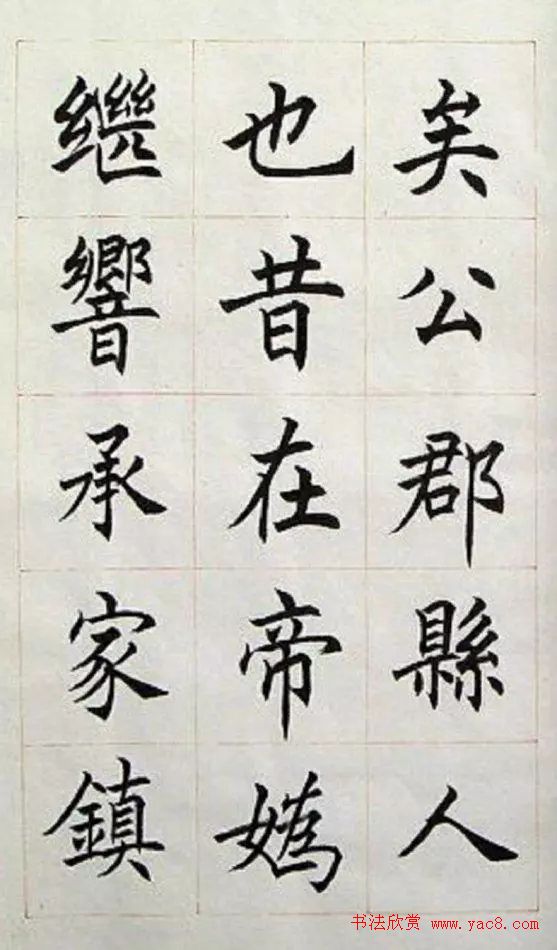 矣公郡縣人
也昔在帝嬀
繼響承家鎮
书法欣赏 www.yac8.com